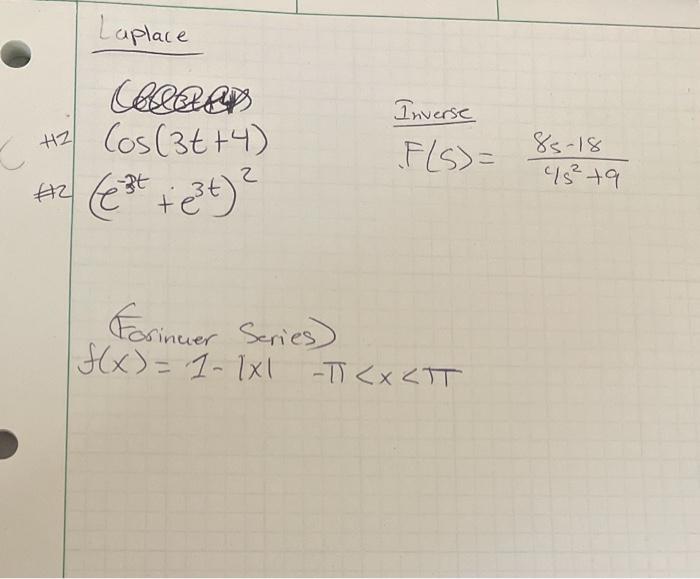 Laplace
#2 Cos(3t+4)
#2 (e^-3t + e^3t)^2
Inverse
F(s) = 8s-18 / 4s^2+9
Series)
f(x) = 1 - |x| -π < x < π